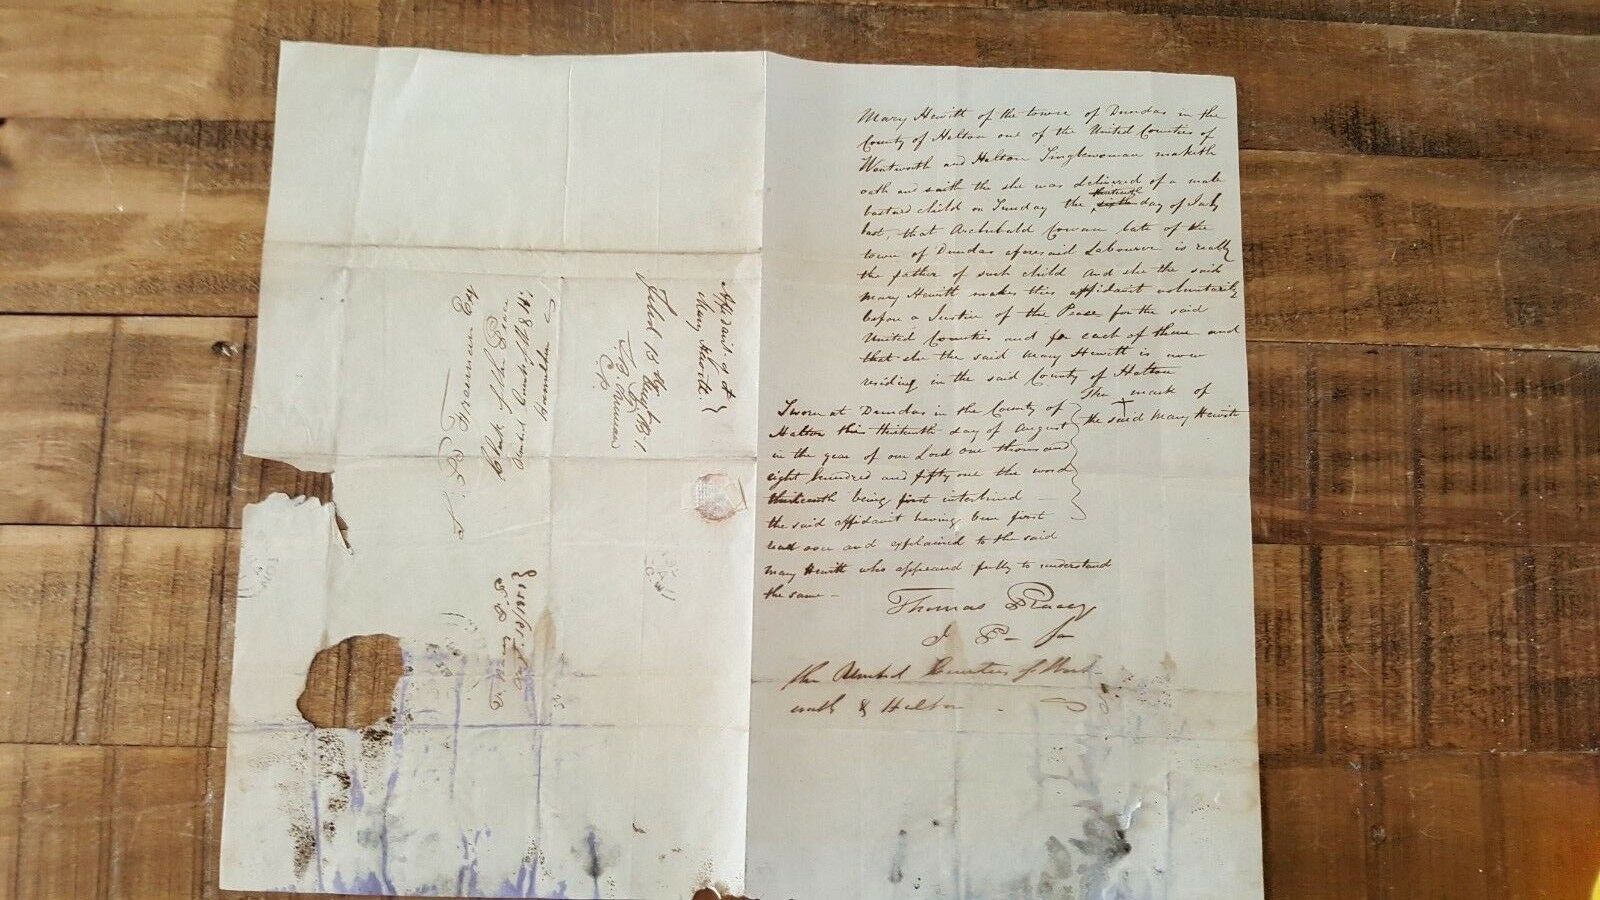 Mary Hewitt of the towne of Dundas in the
County of Halton one of the United Counties of
Wentworth and Halton Singlewoman maketh
oath and saith the she was delivered of a male
bastard child on Sunday the thirteenth sixth day of July
last, that Archibald Cowan late of the
towne of Dundas aforesaid Labourer is really
the father of such child and she the said
Mary Hewitt makes this affidavit voluntarily
before a Justice of the Peace for the said
United Counties and for each of them and
that she the said Mary Hewitt is now
residing in the said County of Halton
The mark of
X
the said Mary Hewitt
Sworn at Dundas in the County of
Halton this thirteenth day of August
in the year of our Lord one thousand
eight hundred and fifty one the word
thirteenth being first interlined —
the said affidavit having been first
read over and explained to the said
Mary Hewitt who appeared fully to understand
the same —
Thomas Racey
J P — for
the United Counties of Went-
worth & Halton
Affidavit of
Mary Hewitt
Filed 15 1851
CP
S. B. Freeman Esq
Clerk of the Peace
United Counties W & H
Hamilton